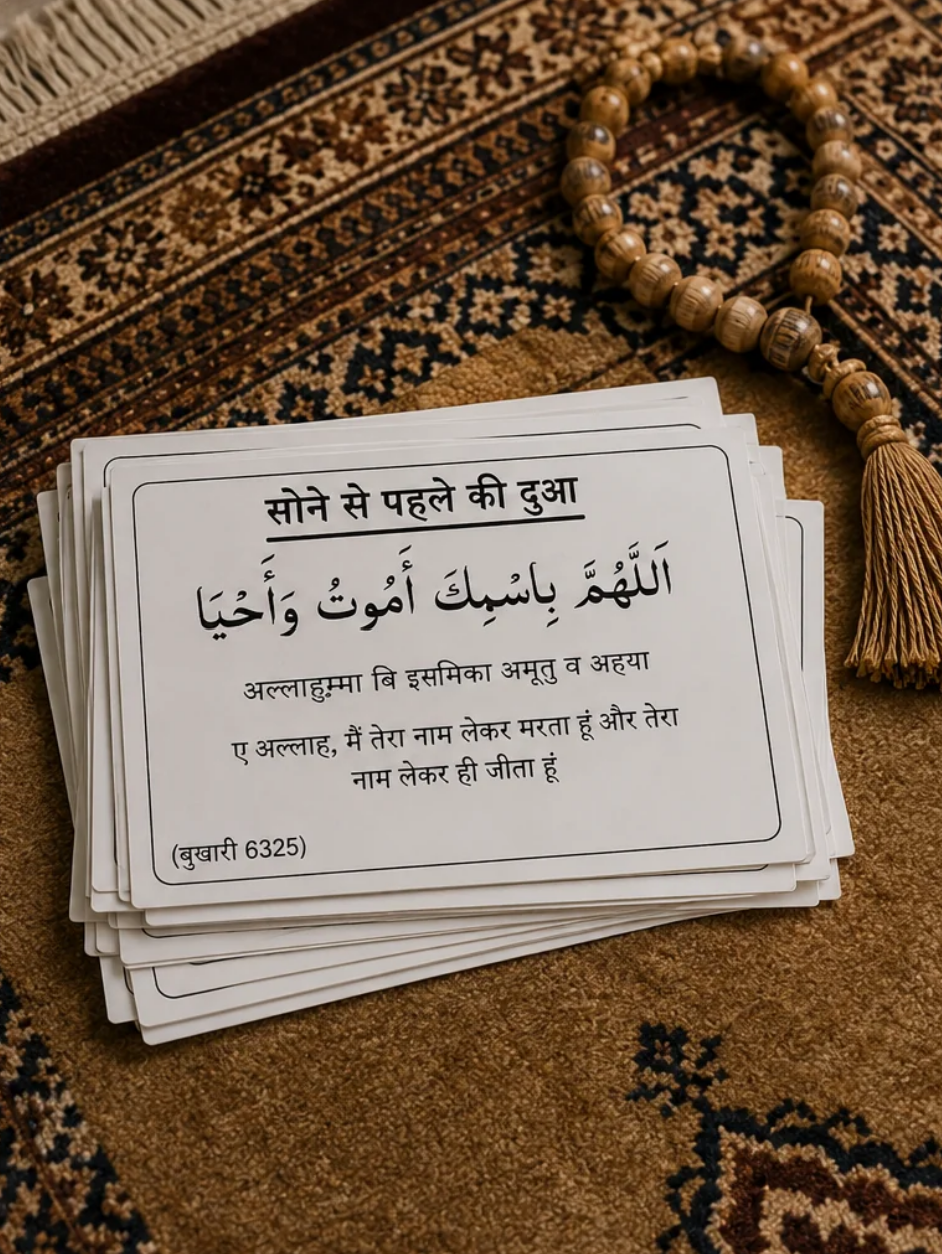 सोने से पहले की दुआ
اَللَّهُمَّ بِاسْمِكَ أَمُوتُ وَأَحْيَا
अल्लाहुम़्मा बि इसमिका अमूतु व अहया
ए अल्लाह, मैं तेरा नाम लेकर मरता हूं और तेरा
नाम लेकर ही जीता हूं
(बुखारी 6325)